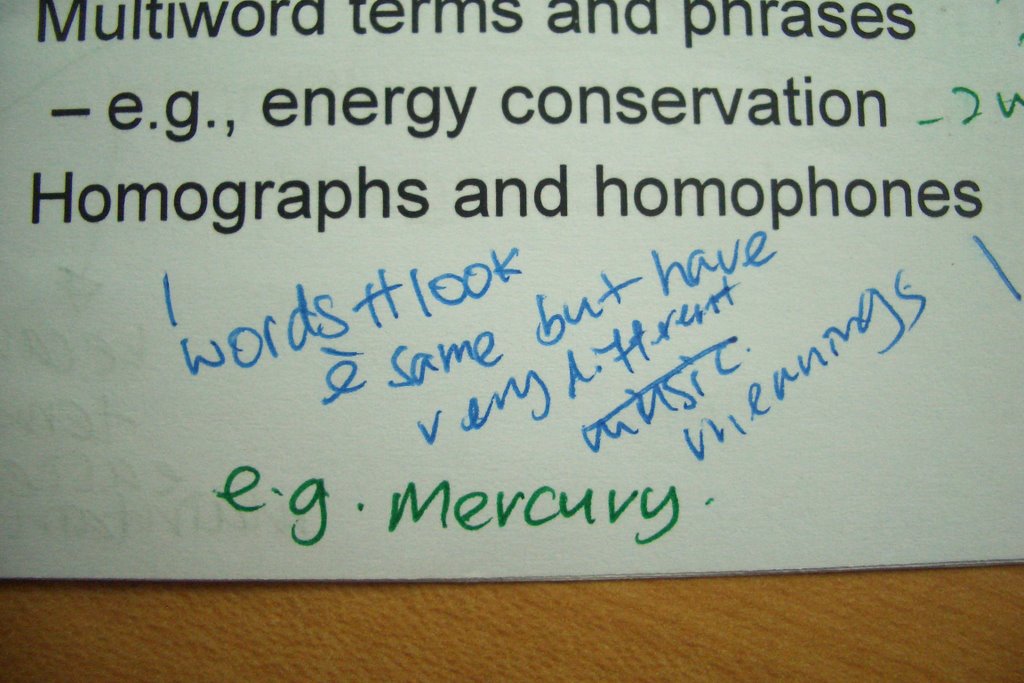 Multiword terms and phrases
– e.g., energy conservation - 2 w
Homographs and homophones
words tt look
è same but have
very different
music
meanings
e.g. Mercury.